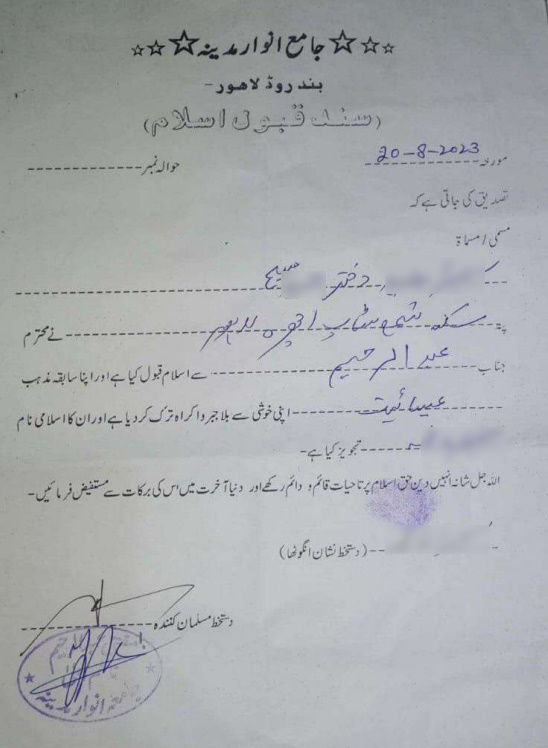 ☆☆☆ جامع انوار مدینہ ☆☆☆
بند روڈ لاہور-
(سند قبول اسلام)
مورخہ 20-8-2023 حوالہ نمبر
تصدیق کی جاتی ہے کہ
مسمی / مسماۃ
دختر مسیح
پتہ سکنہ شمع سٹاپ اچھرہ لاہور نے محترم
جناب عبدالرحیم سے اسلام قبول کیا ہے اور اپنا سابقہ مذہب
عیسائیت اپنی خوشی سے بلا جبر و اکراہ ترک کر دیا ہے اور ان کا اسلامی نام
تجویز کیا ہے-
اللہ جل شانہ انہیں دین حق اسلام پر تاحیات قائم و دائم رکھے اور دنیا آخرت میں اس کی برکات سے مستفیض فرمائیں-
(دستخط نشان انگوٹھا)
دستخط مسلمان کنندہ
جامعہ انوار مدینہ